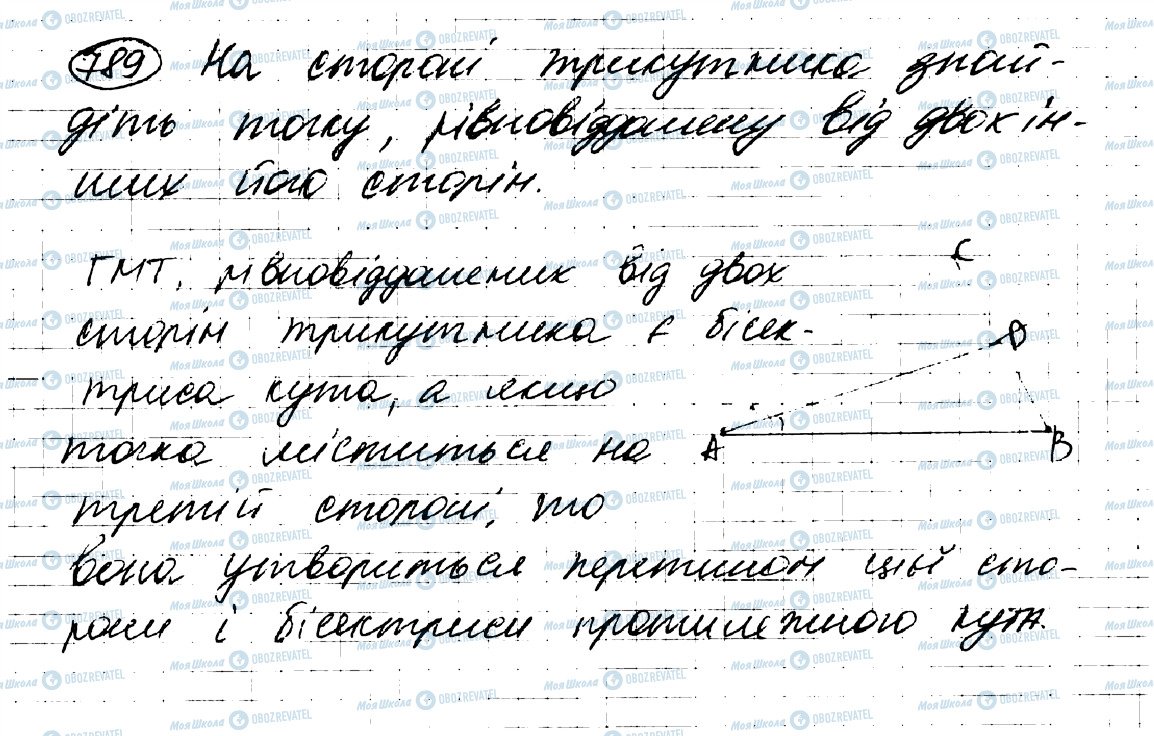 789 На стороні трикутника знай-
діть точку, рівновіддалену від двох ін-
ших його сторін.
ГМТ, рівновіддалених від двох
сторін трикутника є бісек-
триса кута, а якщо
точка міститься на
третій стороні, то
вона утвориться перетином цієї сто-
рони і бісектриси протилежного кута.
C
D
A B